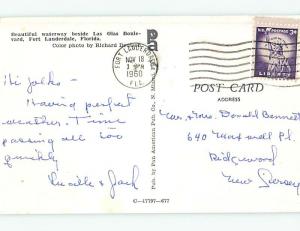 Beautiful waterway beside Las Olas Boule-
vard, Fort Lauderdale, Florida.
Color photo by Richard
FORT LAUDERDALE
NOV 18
PM
1960
FLA.
U.S. POSTAGE 3¢
LIBERTY
POST CARD
ADDRESS
Pub. by Pan American Pub. Co.
Hi folks -
Having perfect
weather. Time
passing all too
quickly
Lucille & Jack
Mr. & Mrs. Donald Bennett
640 Maxwell Pl.
Ridgewood
New Jersey
C-17797-677